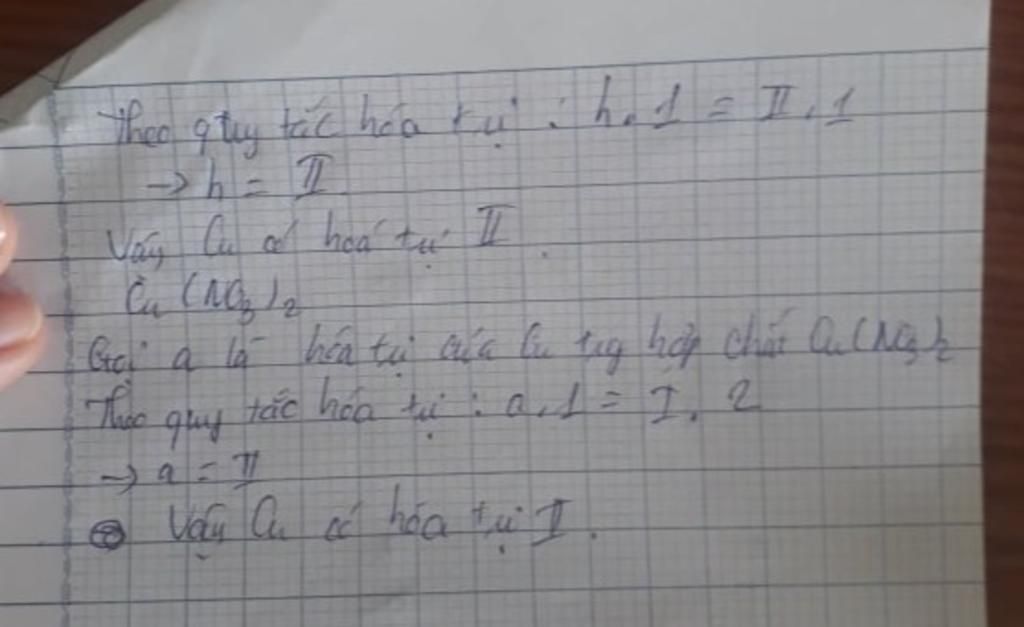 Theo quy tắc hóa trị : h. 1 = II . 1
→ h = II
Vậy Cu có hoá trị II .
Cu (NO3)2
Gọi a là hóa trị của Cu trg hợp chất Cu(NO3)2
Theo quy tắc hóa trị : a.1 = I. 2
→ a = II
Vậy Cu có hóa trị II .